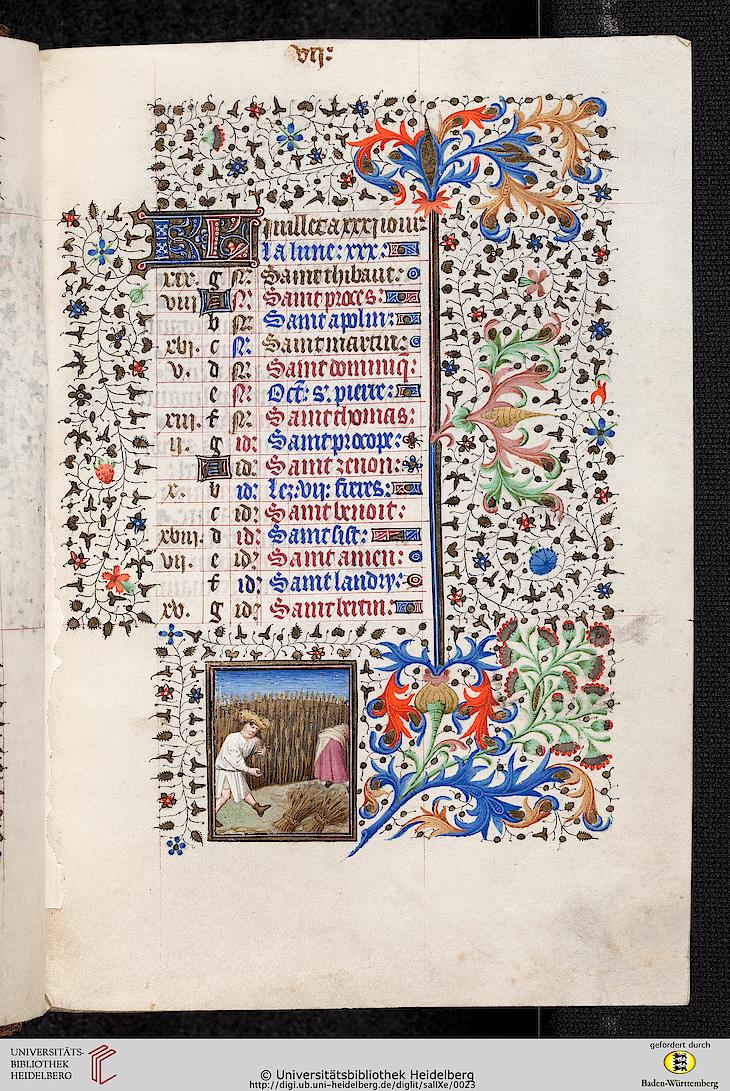 vij:
KL Juillet a xxxj iour:
La lune: xxx:
xix. g N: Saint thibaut:
viij A N: Saint proces:
b N: Saint aplin:
xvj. c N: Saint martin:
v. d N: Saint dominiq:
e N: Oct: s. pierre:
xiij. f N: Saint thomas:
ij. g id: Saint procope:
A id: Saint zenon:
x. b id: Lez: vij: freres:
c id: Saint benoit:
xviij. d id: Saint sixt:
vij. e id: Saint amen:
f id: Saint landry:
xv. g id: Saint bertin:
UNIVERSITÄTS-
BIBLIOTHEK
HEIDELBERG
© Universitätsbibliothek Heidelberg
http://digi.ub.uni-heidelberg.de/diglit/salIXe/0023
gefördert durch
Baden-Württemberg